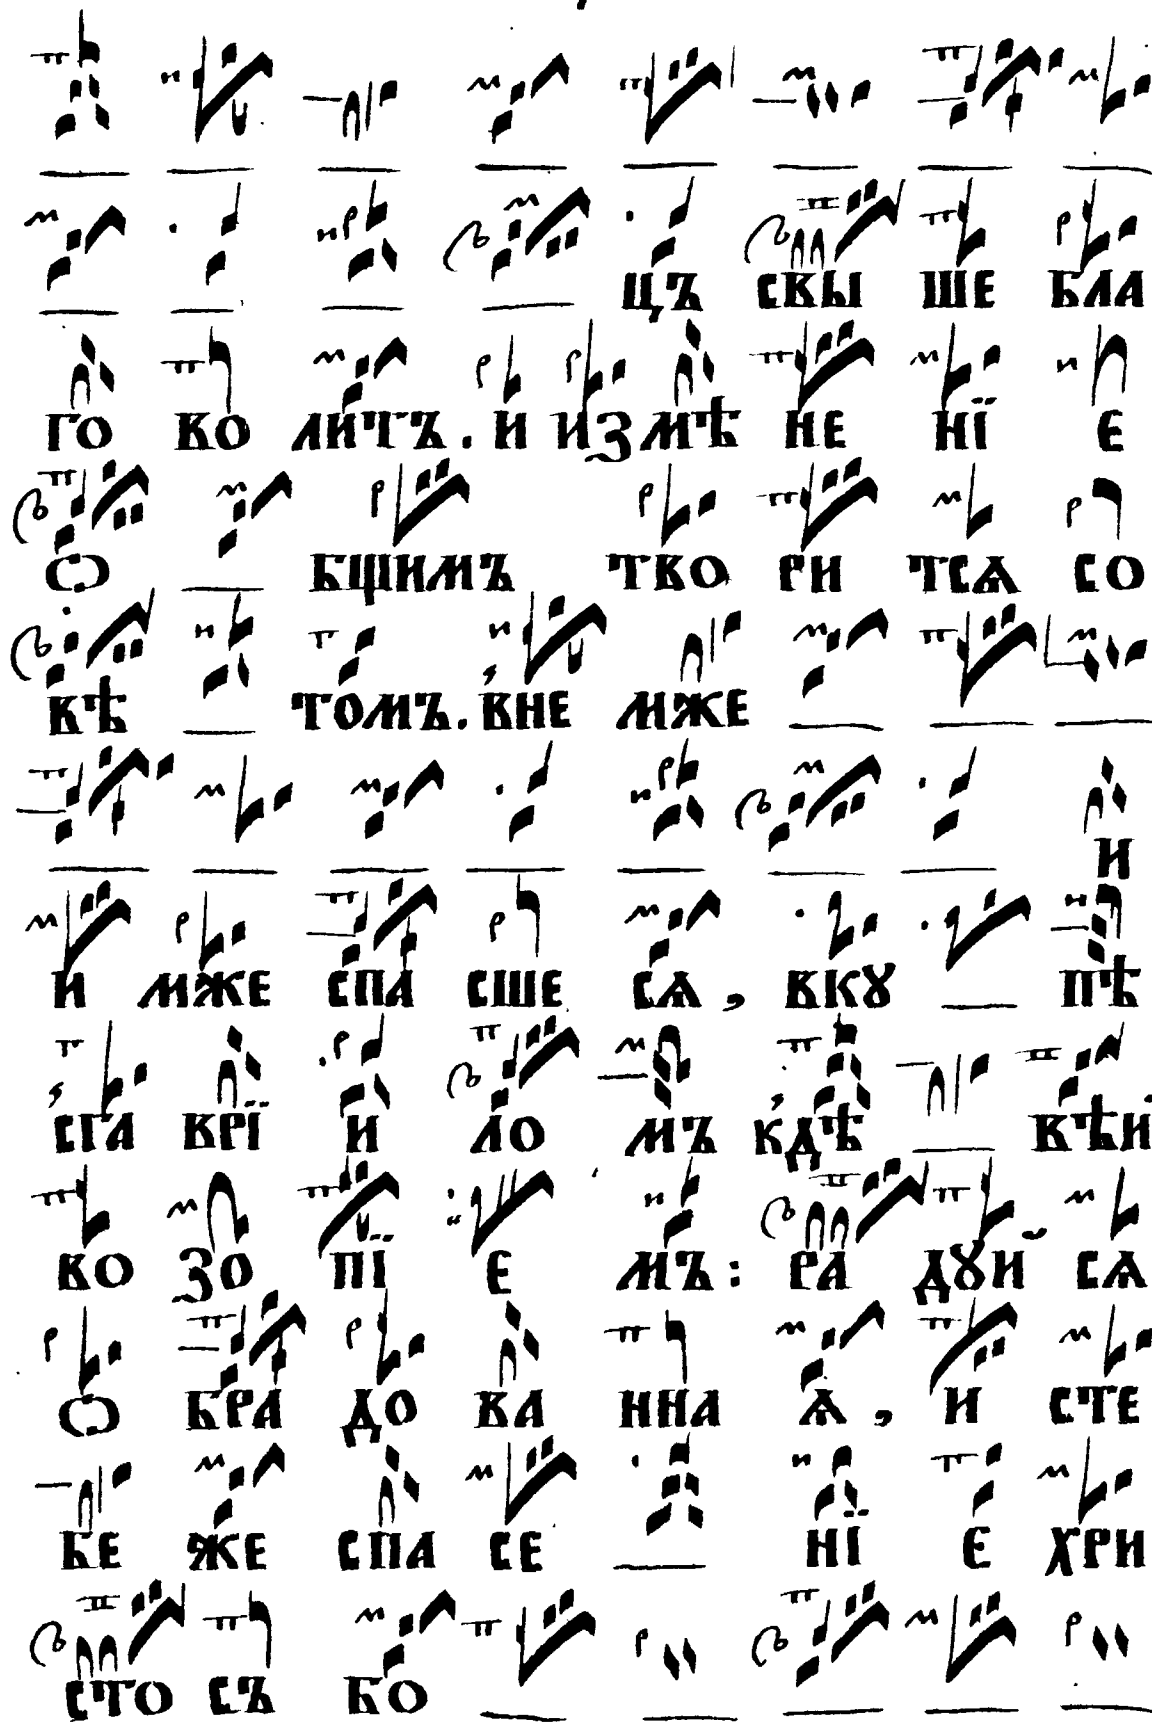 цъ свы ше бла
го во литъ. и измѣ не нї е
ѡ бщимъ тво ри тсѧ со
вѣ томъ. вне мже
и
и мже спа сше сѧ, вкꙋ пѣ
сга врї и ло мъ кдѣ вѣи
во зо пї е мъ: ра дꙋй сѧ
ѡ бра до ва нна ѧ, и сте
бе же спа се нї є хри
сто съ бо